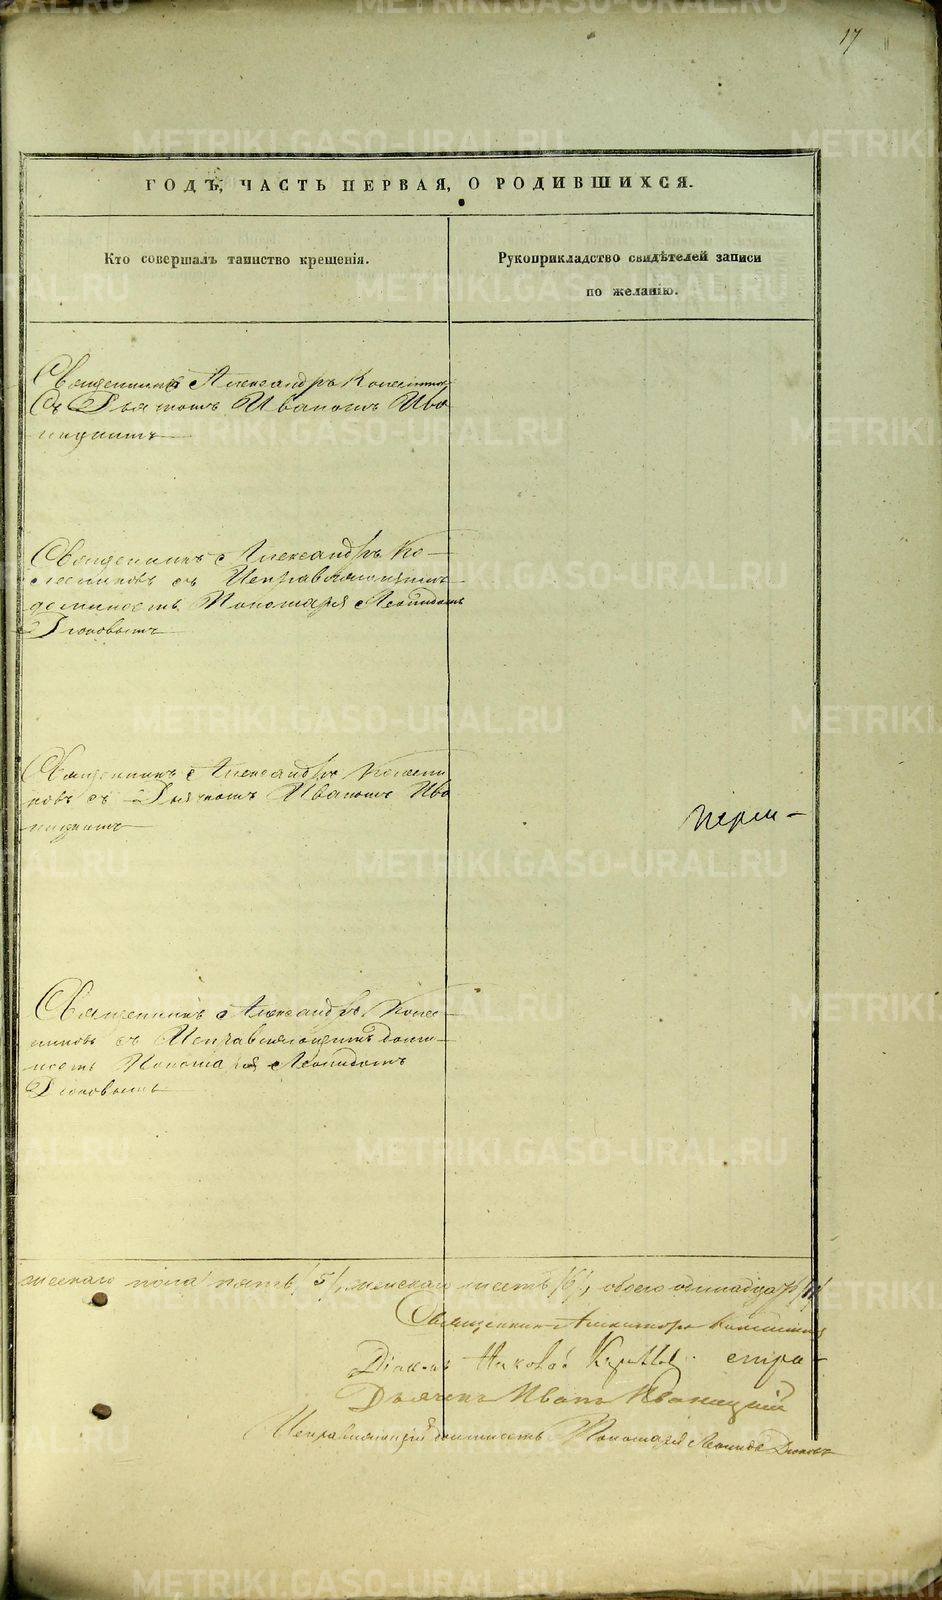 17
ГОДЪ, ЧАСТЬ ПЕРВАЯ, О РОДИВШИХСЯ.
Кто совершалъ таинство крещенія.
Рукоприкладство свидѣтелей записи
по желанію.
Священникъ Александръ Колесников
съ Дьячкомъ Иваномъ Ива
ницкимъ
Священникъ Александръ Ко
лесниковъ съ Исправляющимъ
должность Пономаря Леонидомъ
Дюковымъ
Священникъ Александръ Колесни
ковъ съ Дьячкомъ Иваномъ Ива
ницкимъ
Священникъ Александръ Колес
никовъ съ Исправляющимъ Долж
ность Пономаря Леонидомъ
Дюковымъ
мескаго пола пять /5/, женскаго шесть /6/, обоего одинадцать /11/
Священникъ Александръ Колесников
Діаконъ
Дьячекъ Иванъ Иваницкій
Исправляющій должность Пономаря Леонидъ Дюковъ
METRIKI.GASO-URAL.RU